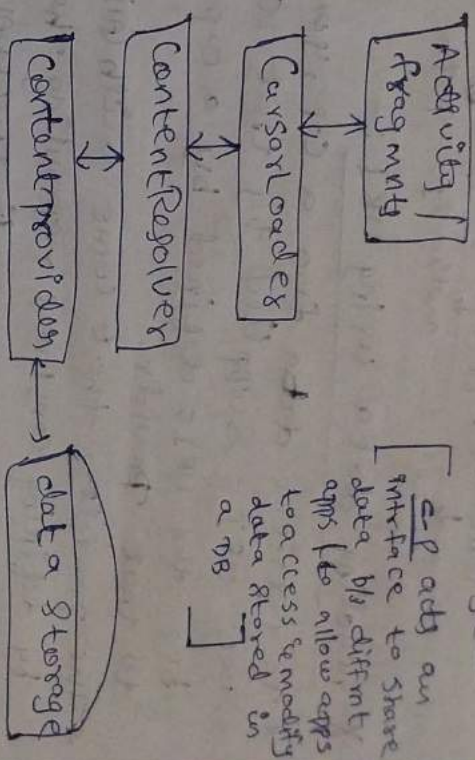 Activity /
fragmnts
CursorLoader
ContentResolver
Contentprovider
data storage
C-P acts an
interface to share
data b/w diffrnt
apps (to allow apps
to access & modify
data stored in
a DB